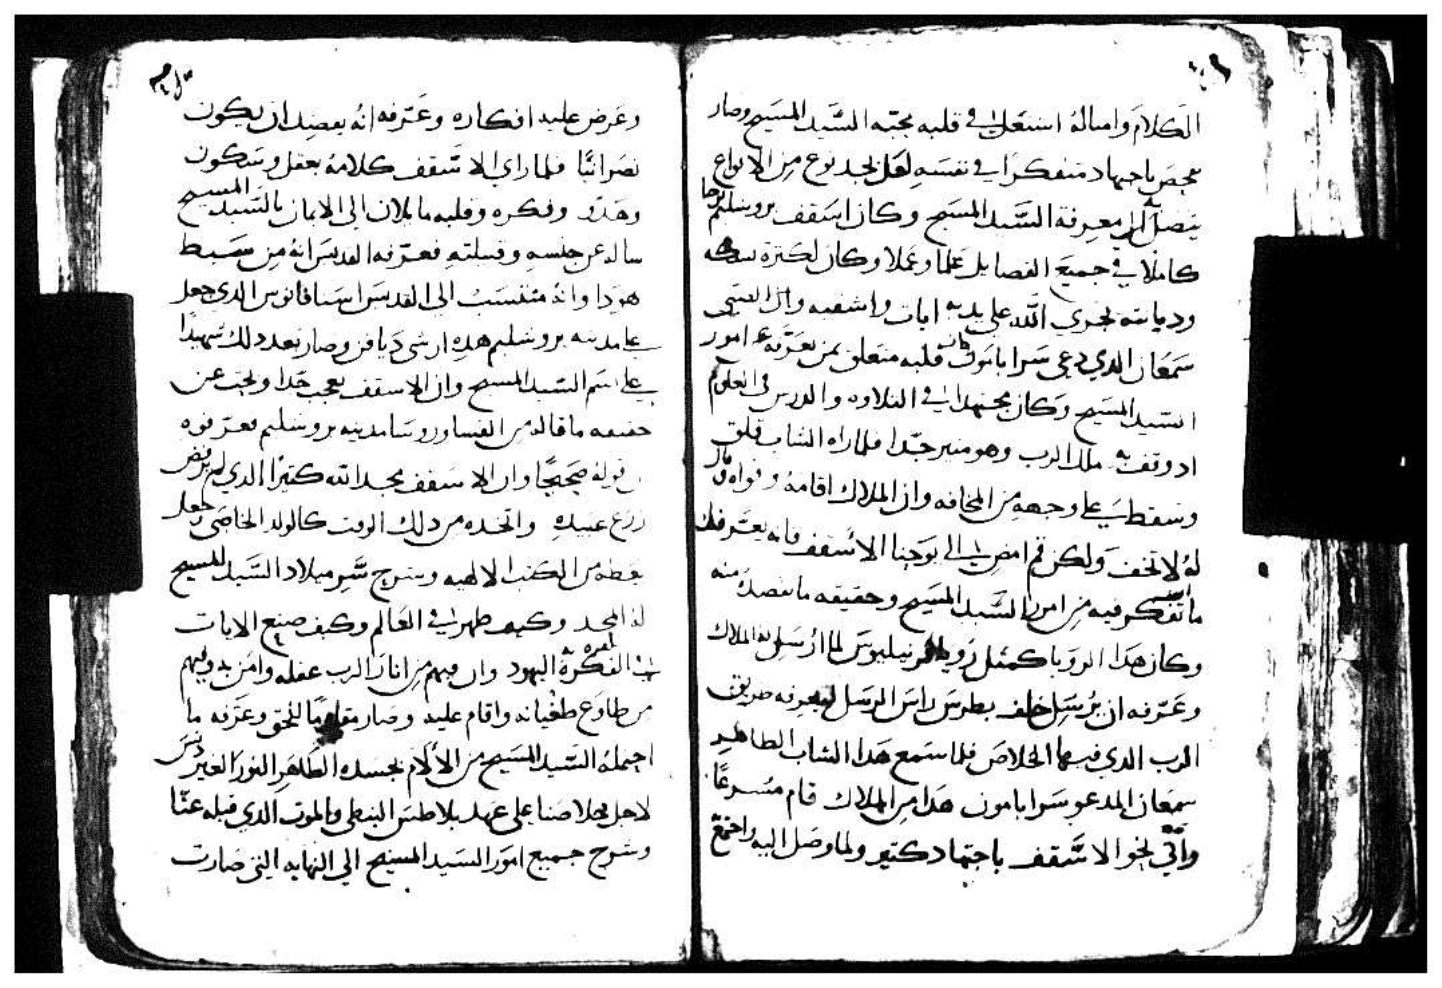 الكلام وامثاله اشتعل في قلبه محبة السيد المسيح وصار
يفحص باجتهاد متفكرا في نفسه لعل يجد نوع من الانواع
يتصل الى معرفة السيد المسيح وكان اسقف بروشليم يوحنا
كاملا في جميع الفضايل علما وعملا وكان لكترة نسكه
وديانته يجري الله على يديه ايات واشفيه وان الصبي
سمعان الدي دعي سرابامون كان قلبه متعلق بمن يعرفه امور
السيد المسيح وكان مجتهدا في التلاوه والدرس في العلوم
اد وقف به ملاك الرب وهو منير جدا فلما راه الشاب قلق
وسقط على وجهه من المخافه وان الملاك اقامه وقواه وقال
له لا تخف ولكن قم امض الى يوحنا الاسقف فانه يعرفك
ما تفكر فيه من امور السيد المسيح وحقيقه ما تقصد منه
وكان هدا الرويا كمتل رويا كرنيليوس لما ارسل له الملاك
وعرفه ان يرسل خلف بطرس راس الرسل ليعرفه طريق
الرب الدي فيها الخلاص فلما سمع هدا الشاب الطاهر
سمعان المدعو سرابامون هدا من الملاك قام مسرعا
واتى نحو الاسقف باجتهاد كتير ولما وصل اليه واجتمع
وعرض عليه افكاره وعرفه انه يقصد ان يكون
نصرانيا فلما راي الاسقف كلامه بعقل وسكون
وهدو وفكره وقلبه مايلان الى الايمان بالسيد المسيح
ساله عن جنسه وقبيلته فعرفه القديس انه من سبط
هودا وانه منتسب الى القديس اسنافانوس الدي جعل
على مدينه بروشليم هده ارشي دياقن وصار بعد دلك شهيدا
على اسم السيد المسيح وان الاسقف تعجب جدا وبحث عن
حقيقه ما قاله من القسا وروسا مدينه بروشليم فعرفوه
ان قوله صحيحا وان الاسقف مجد الله كتيرا الدي لم يرفض
زرع عبيده واتخده من دلك الوقت كالولد الخاص وجعل
يعظه من الكتب الالهيه ويشرح سر ميلاد السيد المسيح
له المجد وكيف ظهر في العالم وكيف صنع الايات
الفكرة اليهود وان فيهم من انار الرب عقله وامن به وفيهم
من طاوع طغيانه واقام عليه وصار مقاوما للحق وعرفه ما
احتمله السيد المسيح من الالام بجسده الطاهر النور الغير دنس
لاجل خلاصنا على عهد بلاطس البنطي والموت الدي قبله عنا
وشرح جميع امور السيد المسيح الي النهايه التي صارت